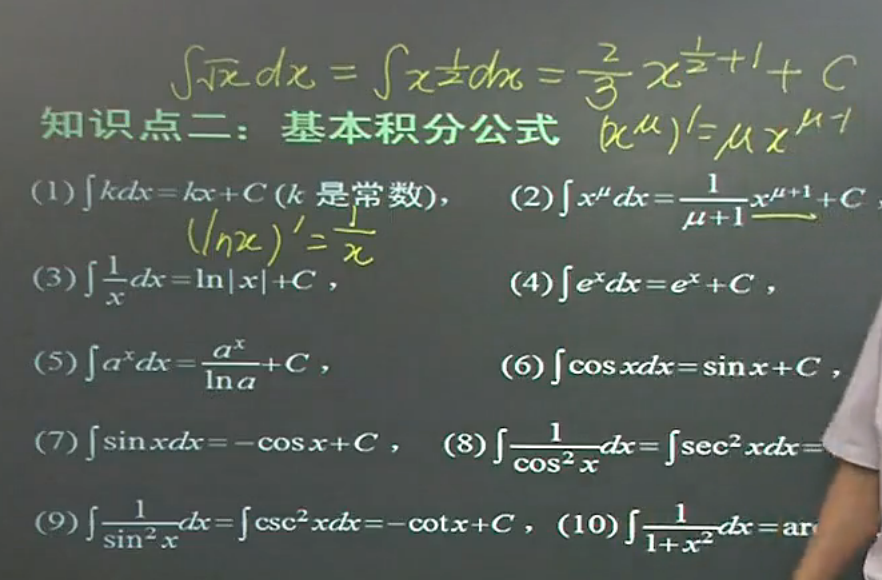 ∫√x dx = ∫x^{1/2}dx = 2/3 x^{1/2+1} + C
知识点二：基本积分公式 (x^μ)' = μx^{μ-1}
(1)∫kdx=kx+C(k 是常数), (2)∫x^μ dx=1/(μ+1) x^{μ+1}+C,
(lnx)' = 1/x
(3)∫1/x dx=ln|x|+C, (4)∫e^x dx=e^x+C,
(5)∫a^x dx=a^x/ln a+C, (6)∫cos xdx=sin x+C,
(7)∫sin xdx=-cos x+C, (8)∫1/cos² x dx=∫sec² xdx=
(9)∫1/sin² x dx=∫csc² xdx=-cot x+C, (10)∫1/(1+x²) dx=ar